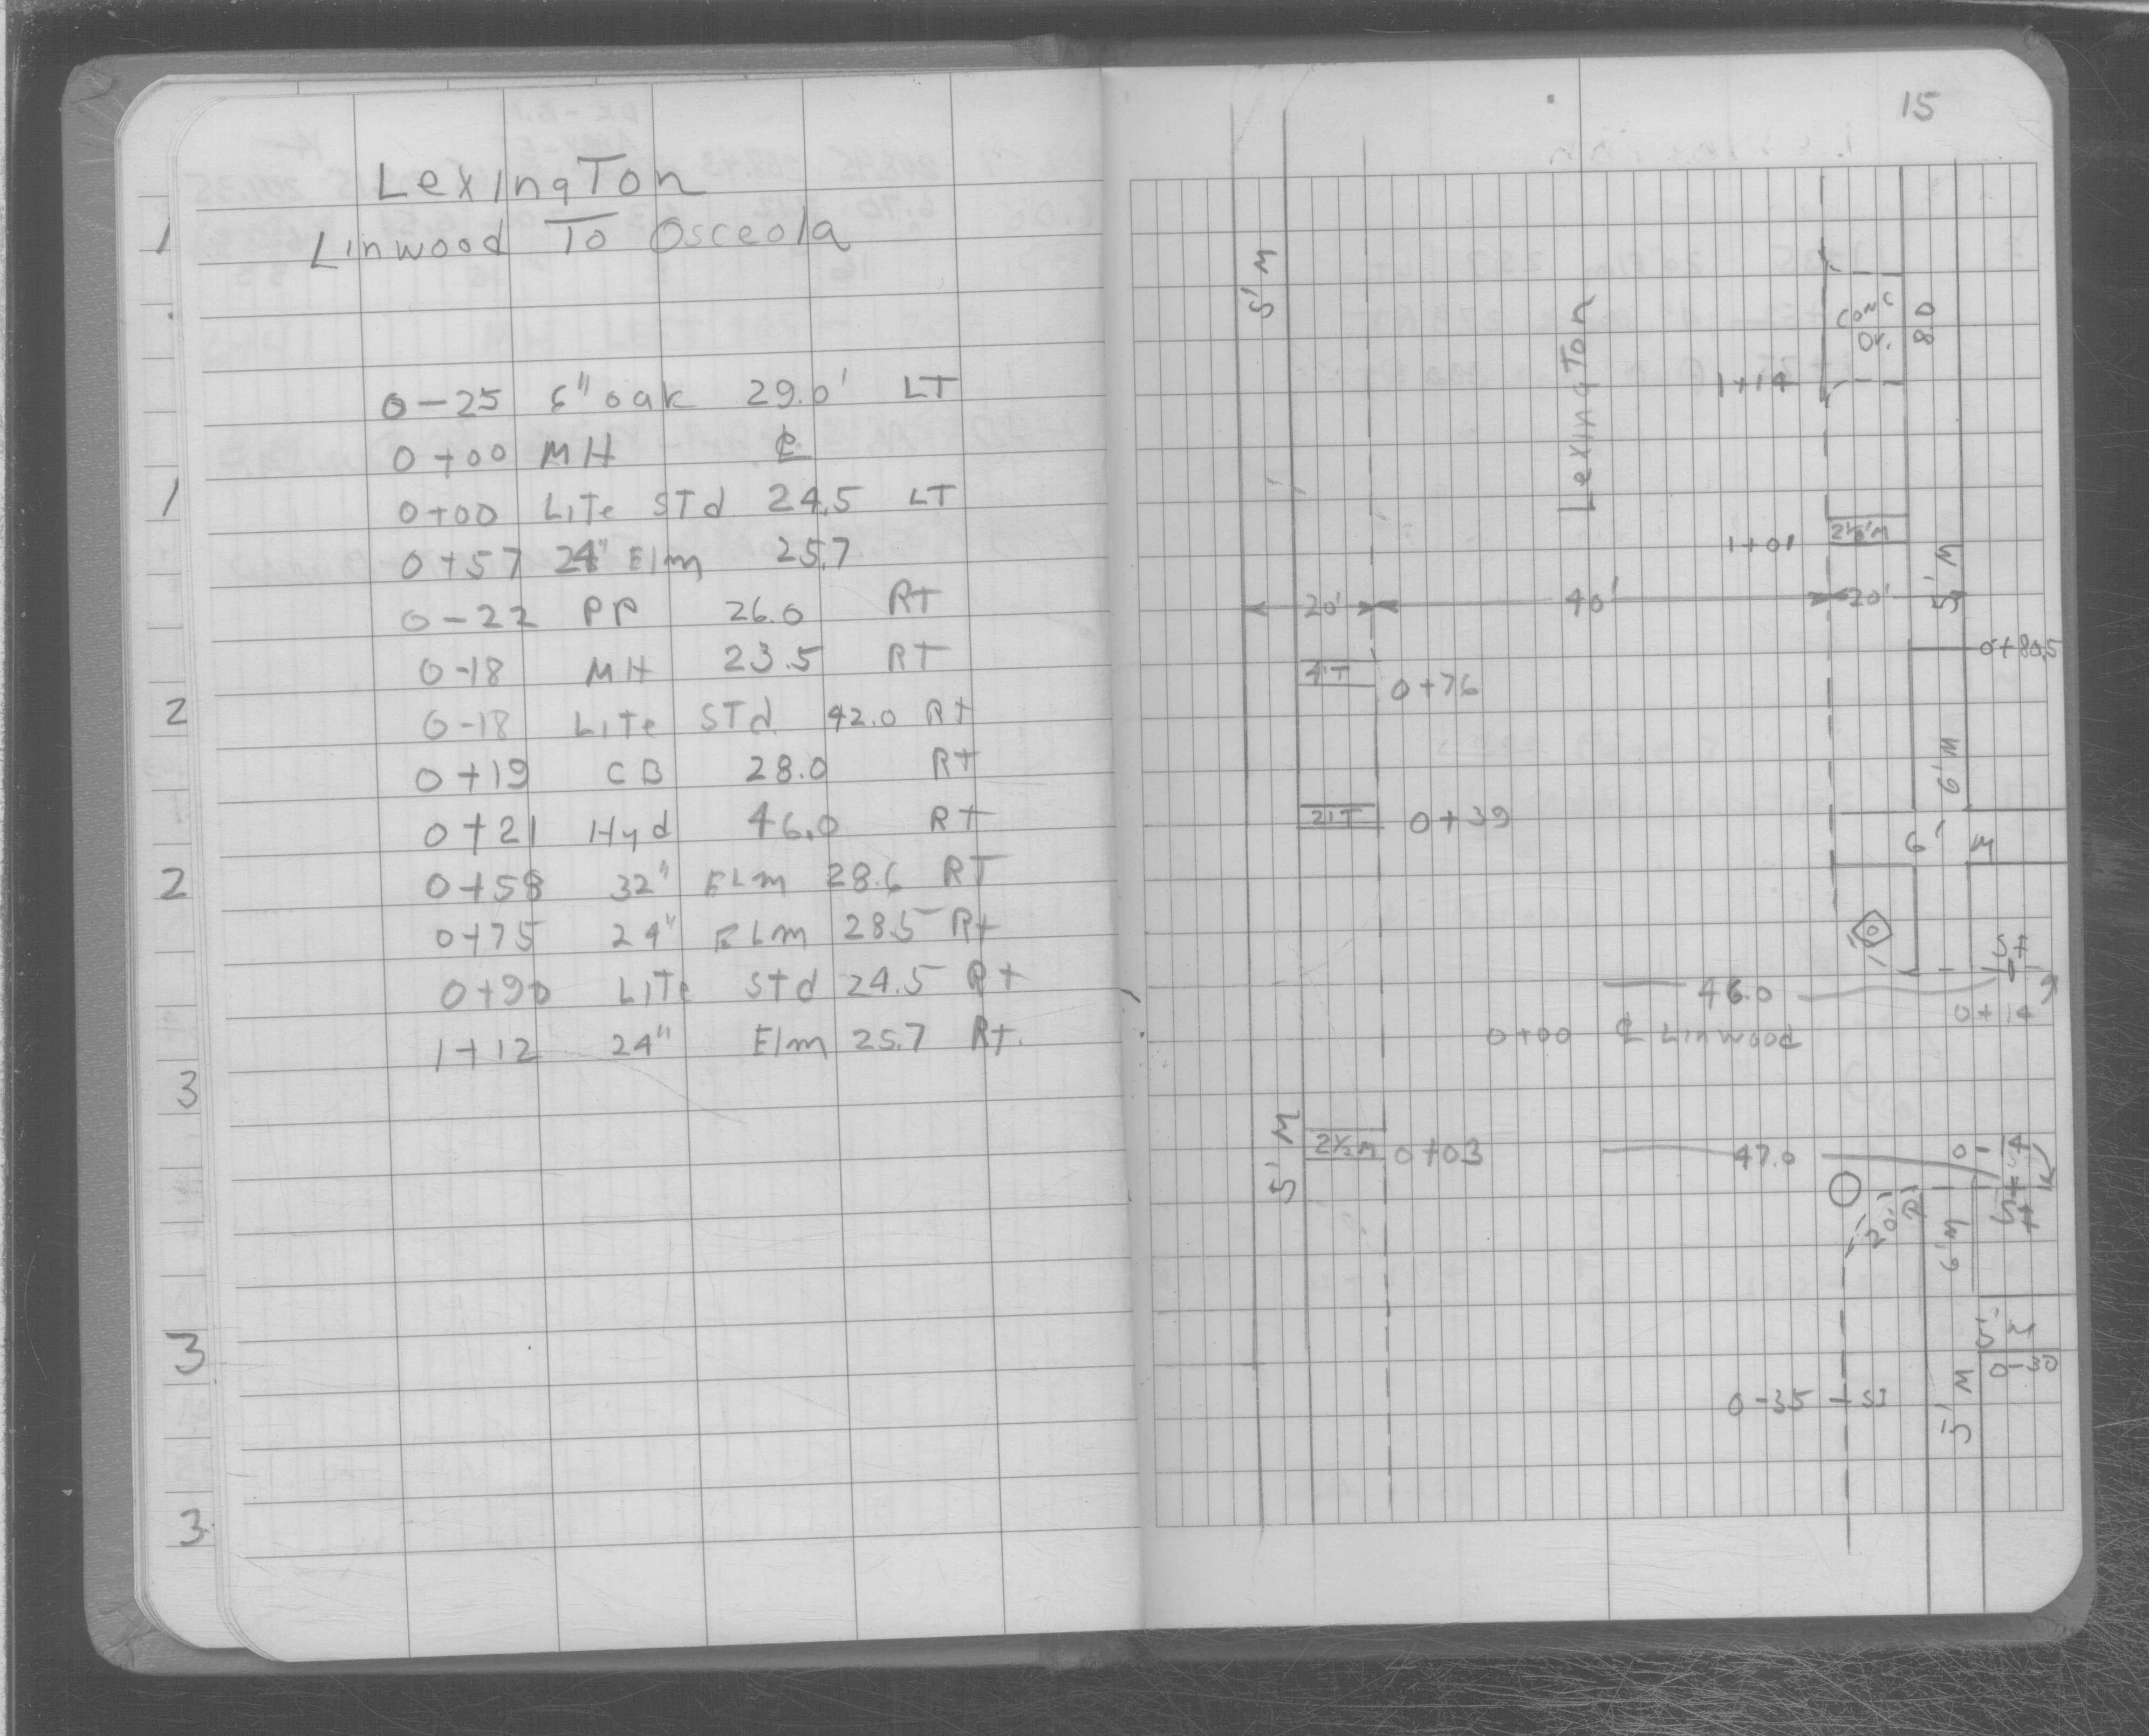 LexingTon
Linwood To Osceola
0-25 6" oak 29.0' LT
0+00 MH ℄
0+00 LiTe STd 24.5 LT
0+57 24" Elm 25.7
0-22 PP 26.0 RT
0-18 MH 23.5 RT
0-18 LiTe STd. 42.0 Rt
0+19 CB 28.0 Rt
0+21 Hyd 46.0 RT
0+58 32" ELm 28.6 RT
0+75 24" ELm 28.5 Rt
0+90 LITe Std 24.5 Rt
1+12 24" Elm 25.7 Rt.
1
1
2
2
3
3
3
15
5' M
LexingTon
Conc
Dr.
8.0
1+14
1+01
2½' M
5' M
20'
40'
20'
0+80.5
4'T
0+76
6' M
2'T
0+39
6' M
St
46.0
0+14
0+00 ℄ Linwood
5' M
2½ M
0+03
47.0
0-14
St
20'
R
6' M
5'
0-30
5' M
0-35